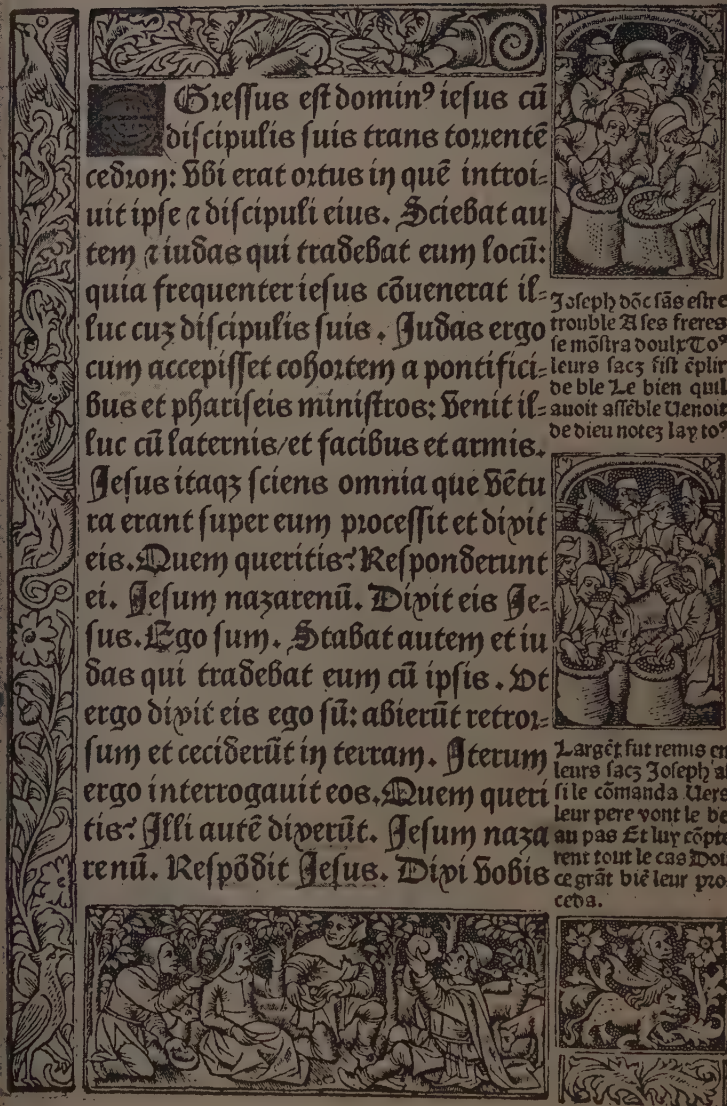 EGressus est dominꝰ iesus cū
discipulis suis trans torrentē
cedron: Vbi erat ortus in quē introi=
uit ipse ⁊ discipuli eius. Sciebat au
tem ⁊ iudas qui tradebat eum locū:
quia frequenter iesus cōuenerat il=
luc cuʒ discipulis suis. Judas ergo
cum accepisset cohortem a pontifici=
bus et phariseis ministros: venit il=
luc cū laternis/et facibus et armis.
Jesus itaqʒ sciens omnia que vētu
ra erant super eum processit et dixit
eis. Quem queritis? Responderunt
ei. Jesum nazarenū. Dixit eis Je=
sus. Ego sum. Stabat autem et iu
das qui tradebat eum cū ipsis. Vt
ergo dixit eis ego sū: abierūt retror=
sum et ceciderūt in terram. Iterum
ergo interrogauit eos. Quem queri
tis? Illi autē dixerūt. Jesum naza
renū. Respōdit Jesus. Dixi vobis
Joseph dōc sās estre
trouble A ses freres
se mōstra doulx Toꝰ
leurs sacz fist ēplir
de ble Le bien quil
auoit assēble Uenoit
de dieu notez lay toꝰ
Largēt fut remis en
leurs sacz Joseph ai
si le cōmanda Uers
leur pere vont le be
au pas Et luy cōpte
rent tout le cas Dou
ce grāt biē leur pro
ceda.